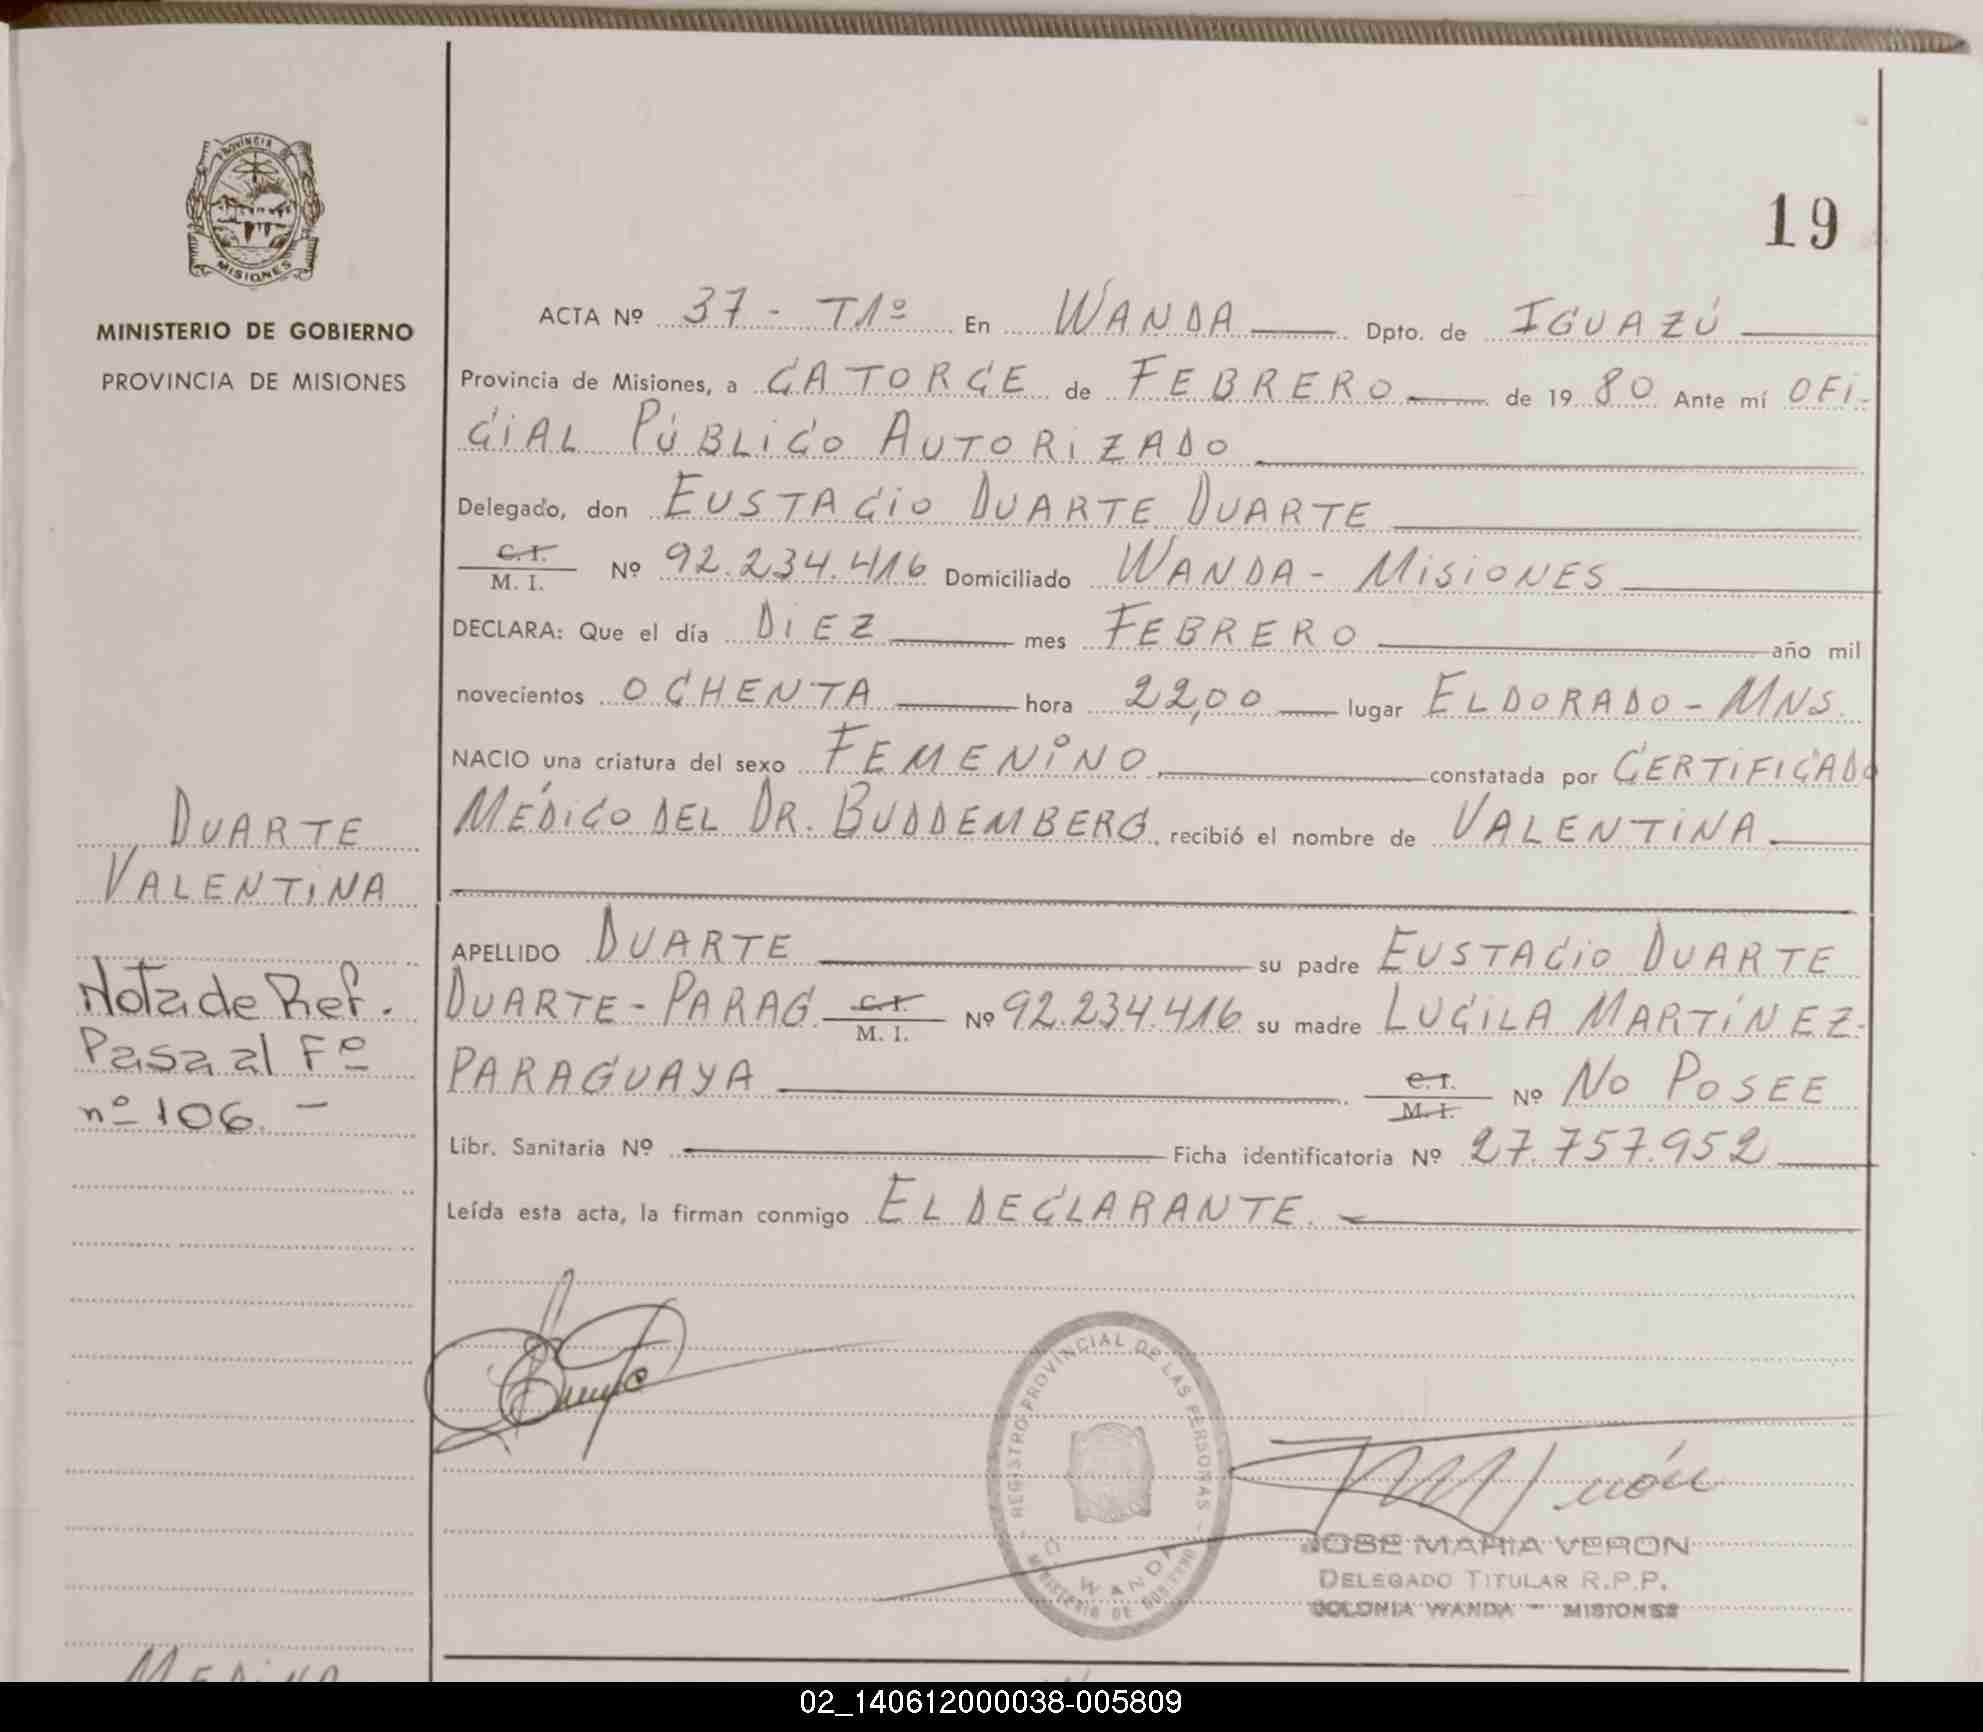 PROVINCIA DE
MISIONES
MINISTERIO DE GOBIERNO
PROVINCIA DE MISIONES
19
ACTA Nº 37 - T1º En WANDA Dpto. de IGUAZÚ
Provincia de Misiones, a CATORCE de FEBRERO de 19 80 Ante mí OFI-
CIAL PÚBLICO AUTORIZADO
Delegado, don EUSTACIO DUARTE DUARTE
C. I.
M. I. Nº 92.234.416 Domiciliado WANDA - MISIONES
DECLARA: Que el día DIEZ mes FEBRERO año mil
novecientos OCHENTA hora 22,00 lugar ELDORADO - MNS.
NACIO una criatura del sexo FEMENINO constatada por CERTIFICADO
MÉDICO DEL DR. BUDDEMBERG, recibió el nombre de VALENTINA
DUARTE
VALENTINA
Nota de Ref.
Pasa al Fº
nº 106. -
APELLIDO DUARTE su padre EUSTACIO DUARTE
DUARTE - PARAG. C. I. M. I. Nº 92.234.416 su madre LUCILA MARTÍNEZ-
PARAGUAYA C. I. M. I. Nº NO POSEE
Libr. Sanitaria Nº Ficha identificatoria Nº 27.757.952
Leída esta acta, la firman conmigo EL DECLARANTE.
REGISTRO PROVINCIAL DE LAS PERSONAS -
MINISTERIO DE GOBIERNO
WANDA
JOSE MARIA VERON
DELEGADO TITULAR R.P.P.
COLONIA WANDA - MISIONES
MEDINA
02_140612000038-005809